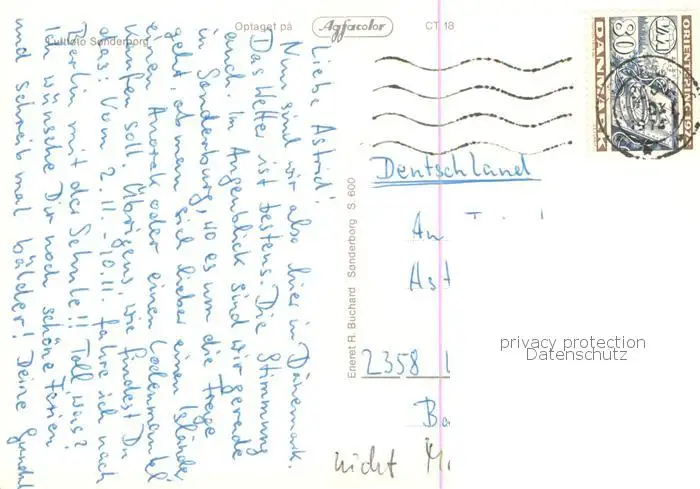 Luftfoto Sønderborg
Optaget på
Agfacolor
CT 18
Liebe Astrid!
Nun sind wir also hier in Dänemark.
Das Wetter ist bestens. Die Stimmung
auch. In Augenblick sind wir gerade
in Sonderburg, wo es um die Frage
geht, ob man sich lieber einen Isländer
einen Anorak oder einen Lodenmantel
kaufen soll. Übrigens, wie findest Du
das: Vom 2.11.-10.11. fahre ich nach
Berlin mit der Schule!! Toll, was?
Ich wünsche Dir noch schöne Ferien
und schreib mal bälder! Deine
Eneret R. Buchard Sønderborg S. 600
DANMARK
80
Deutschland
An
Ast
2358
Ba
nicht
privacy protection
Datenschutz